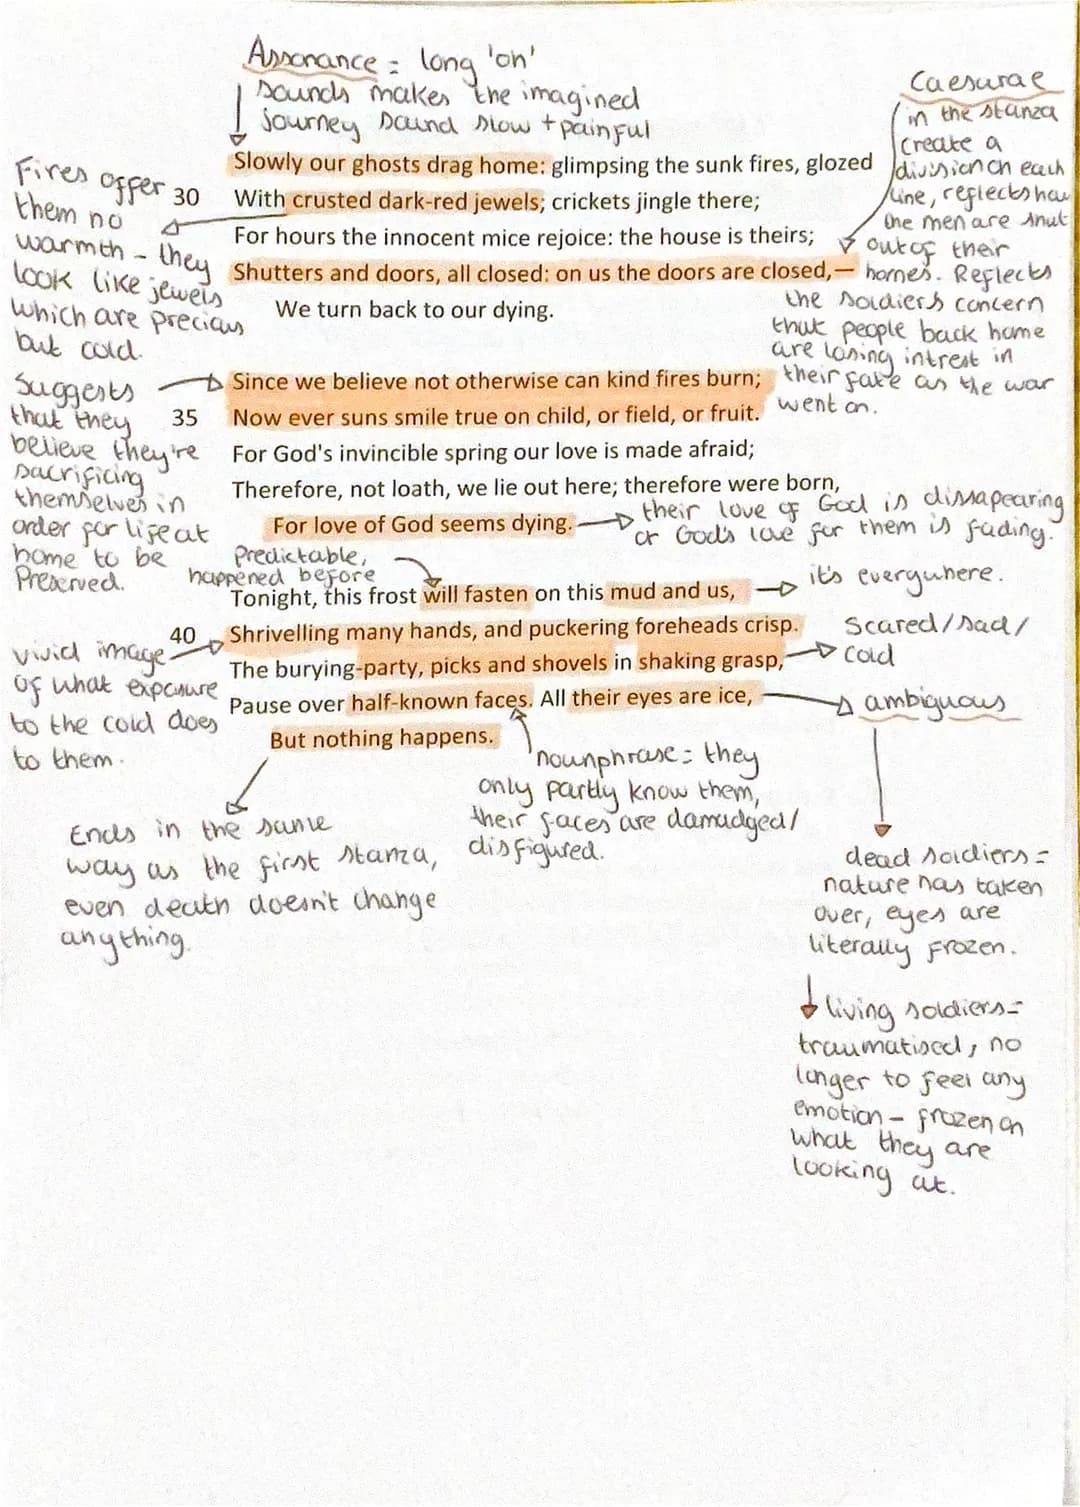 Assonance = long 'oh'
sounds makes the imagined
journey sound slow + painful
Caesurae
in the stanza
create a
division on each
line, reflects how
the men are shut
out of their
homes. Reflects
the soldiers concern
that people back home
are losing intrest in
their fate as the war
went on.
Slowly our ghosts drag home: glimpsing the sunk fires, glozed
30 With crusted dark-red jewels; crickets jingle there;
For hours the innocent mice rejoice: the house is theirs;
Shutters and doors, all closed: on us the doors are closed,—
We turn back to our dying.
Fires offer
them no
warmth - they
look like jewels
which are precious
but cold.
Since we believe not otherwise can kind fires burn;
35 Now ever suns smile true on child, or field, or fruit.
For God's invincible spring our love is made afraid;
Therefore, not loath, we lie out here; therefore were born,
For love of God seems dying.
Suggests
that they
believe they're
sacrificing
themselves in
order for life at
home to be
Preserved.
their love of God is dissapearing
or God's love for them is fading.
Predictable,
happened before
Tonight, this frost will fasten on this mud and us,
40 Shrivelling many hands, and puckering foreheads crisp.
The burying-party, picks and shovels in shaking grasp,
Pause over half-known faces. All their eyes are ice,
But nothing happens.
it's everywhere.
Scared/sad/
cold
ambiguous
vivid image
of what exposure
to the cold does
to them.
nounphrase = they
only partly know them,
their faces are damadged/
disfigured.
Ends in the same
way as the first stanza,
even death doesn't change
anything.
dead soldiers =
nature has taken
over, eyes are
literally frozen.
living soldiers =
traumatised, no
longer to feel any
emotion - frozen on
what they are
looking at.